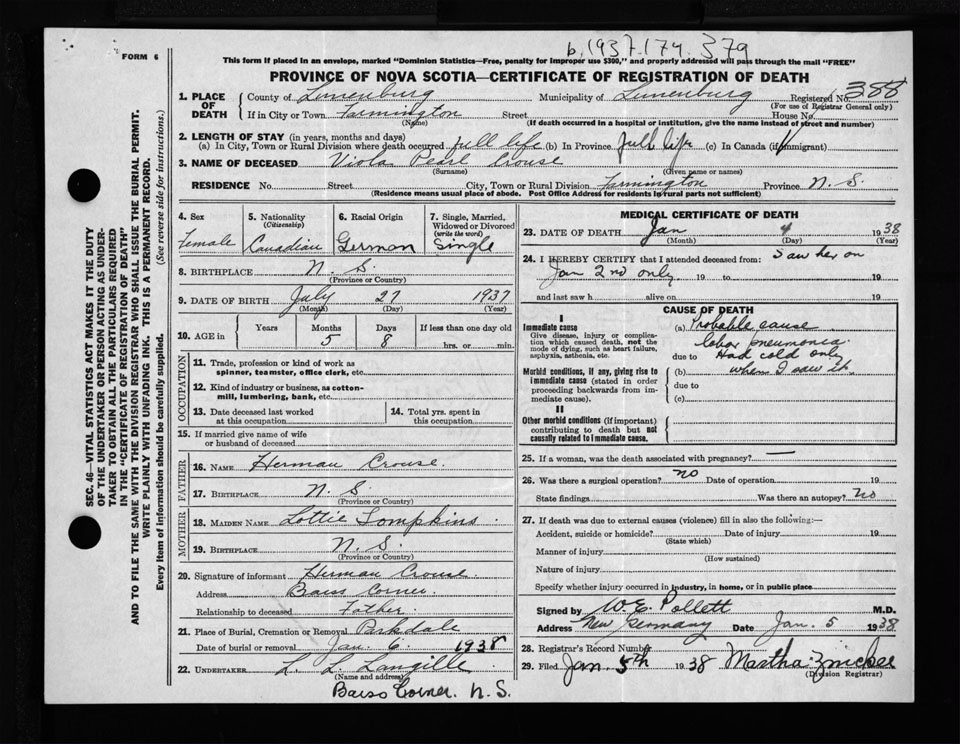 b.1937.174.379
FORM 6
This form if placed in an envelope, marked "Dominion Statistics—Free, penalty for improper use $300," and properly addressed will pass through the mail "FREE"
PROVINCE OF NOVA SCOTIA—CERTIFICATE OF REGISTRATION OF DEATH
1. PLACE OF DEATH County of Lunenburg Municipality of Lunenburg Registered No. 388
(For use of Registrar General only)
If in City or Town Farmington Street House No.
(Name) (If death occurred in a hospital or institution, give the name instead of street and number)
2. LENGTH OF STAY (in years, months and days)
(a) In City, Town or Rural Division where death occurred full life (b) In Province full life (c) In Canada (if immigrant)
3. NAME OF DECEASED Viola Pearl Crouse
(Surname) (Given name or names)
RESIDENCE No. Street City, Town or Rural Division Farmington Province N. S.
(Residence means usual place of abode. Post Office Address for residents in rural parts not sufficient)
4. Sex Female
5. Nationality (Citizenship) Canadian
6. Racial Origin German
7. Single, Married, Widowed or Divorced (write the word) Single
8. BIRTHPLACE N. S.
(Province or Country)
9. DATE OF BIRTH July 27 1937
(Month) (Day) (Year)
10. AGE in Years Months 5 Days 8 If less than one day old hrs. or min.
OCCUPATION
11. Trade, profession or kind of work as
spinner, teamster, office clerk, etc.
12. Kind of industry or business, as cotton-
mill, lumbering, bank, etc.
13. Date deceased last worked
at this occupation
14. Total yrs. spent in
this occupation
15. If married give name of wife
or husband of deceased
FATHER
16. NAME Herman Crouse.
17. BIRTHPLACE N. S.
(Province or Country)
MOTHER
18. MAIDEN NAME Lottie Tompkins
19. BIRTHPLACE N. S.
(Province or Country)
20. Signature of informant Herman Crouse
Address Barss Corner.
Relationship to deceased Father.
21. Place of Burial, Cremation or Removal Parkdale
Date of burial or removal Jan. 6. 1938
22. UNDERTAKER L. L. Langille
(Name and address)
Barss Corner. N. S.
MEDICAL CERTIFICATE OF DEATH
23. DATE OF DEATH Jan 4 1938
(Month) (Day) (Year)
24. I HEREBY CERTIFY that I attended deceased from: Saw her on
Jan 2nd only 19 to 19
and last saw h alive on 19
CAUSE OF DEATH
I
Immediate cause
Give disease, injury or complication which caused death, not the mode of dying, such as heart failure, asphyxia, asthenia, etc.
(a) Probable cause
lobar pneumonia.
due to Had cold only
Morbid conditions, if any, giving rise to immediate cause (stated in order proceeding backwards from immediate cause).
(b) when I saw it.
due to
(c)
II
Other morbid conditions (if important) contributing to death but not causally related to immediate cause.
25. If a woman, was the death associated with pregnancy? —
26. Was there a surgical operation? no Date of operation 19
State findings Was there an autopsy? no
27. If death was due to external causes (violence) fill in also the following:—
Accident, suicide or homicide? Date of injury 19
(State which)
Manner of injury
(How sustained)
Nature of injury
Specify whether injury occurred in industry, in home, or in public place
Signed by W. E. Pollett M.D.
Address New Germany Date Jan. 5 1938
28. Registrar's Record Number
29. Filed Jan. 5th 1938 Martha Zwicker
(Division Registrar)
SEC. 46—VITAL STATISTICS ACT MAKES IT THE DUTY
OF THE UNDERTAKER OR PERSON ACTING AS UNDER-
TAKER TO OBTAIN ALL THE PARTICULARS REQUIRED
IN THE "CERTIFICATE OF REGISTRATION OF DEATH"
AND TO FILE THE SAME WITH THE DIVISION REGISTRAR WHO SHALL ISSUE THE BURIAL PERMIT.
WRITE PLAINLY WITH UNFADING INK. THIS IS A PERMANENT RECORD.
Every item of information should be carefully supplied. (See reverse side for instructions.)